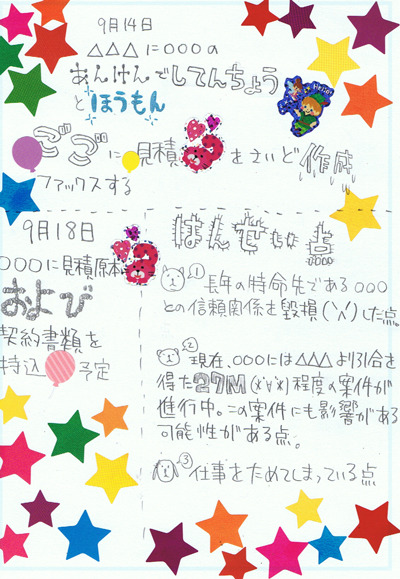 9月14日
△△△に○○○の
あんけんでしてんちょう
とほうもん
Hello!
ごごに見積をさいど作成
ファックスする
9月18日
○○○に見積原本
および
契約書類を
持込予定
はんせい点
① 長年の特命先である○○○
との信頼関係を毀損(')')した点
② 現在、○○○には△△△より引合を
得た27M(*'∀'*)程度の案件が
進行中。この案件にも影響がある
可能性がある点。
③ 仕事をためてしまっている点